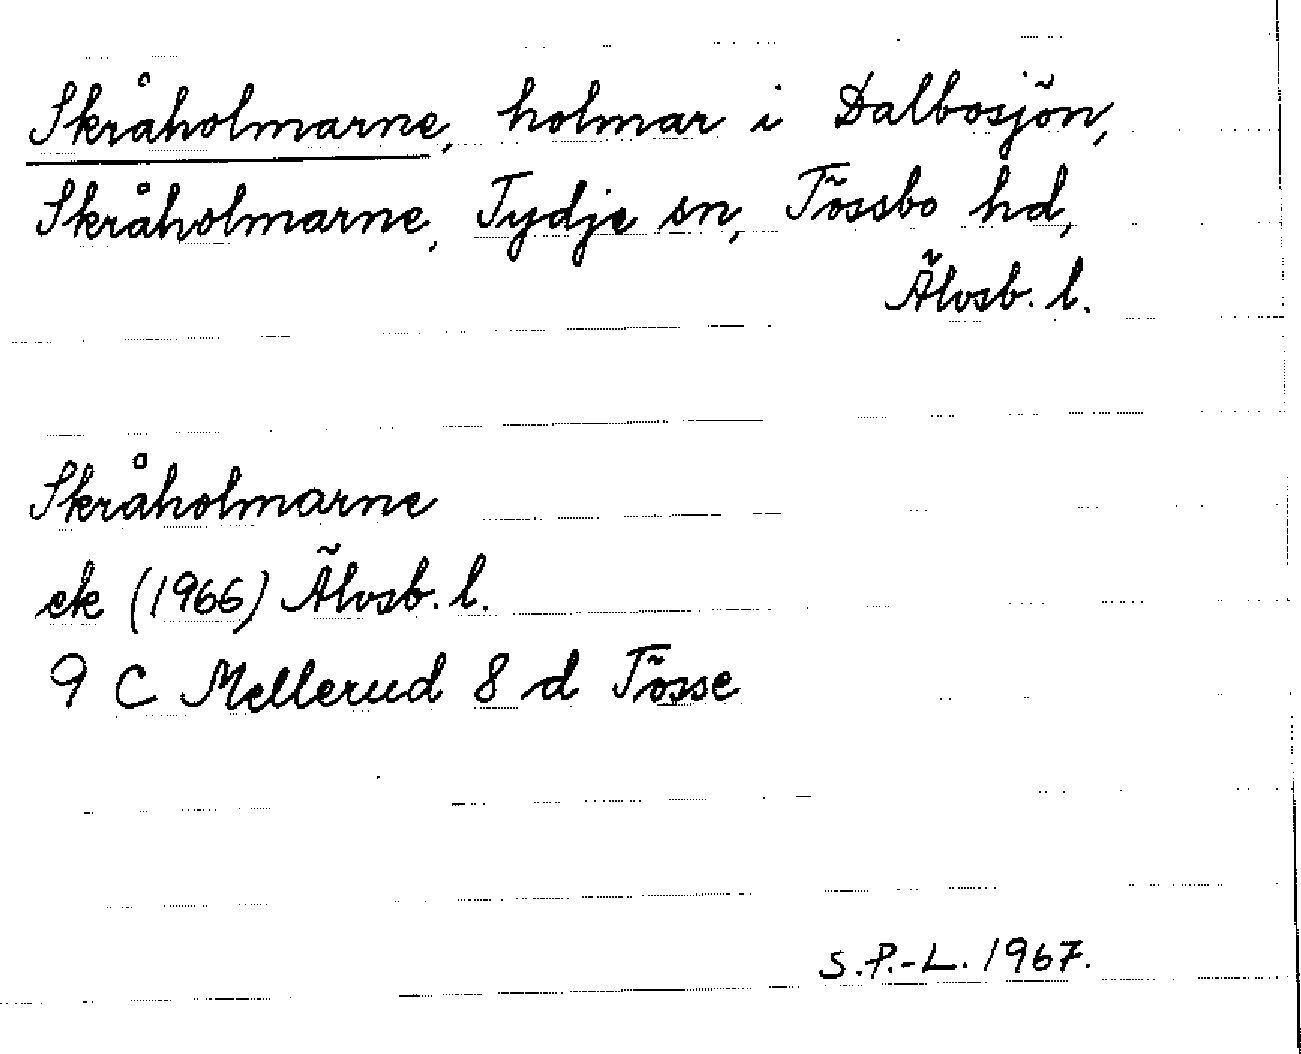 Skråholmarne, holmar i Dalbosjön,
Skråholmarne, Tydje sn, Tössbo hd,
Älvsb. l.
Skråholmarne
ek (1966) Älvsb. l.
9 C Mellerud 8 d Tösse
S.P.-L. 1967.